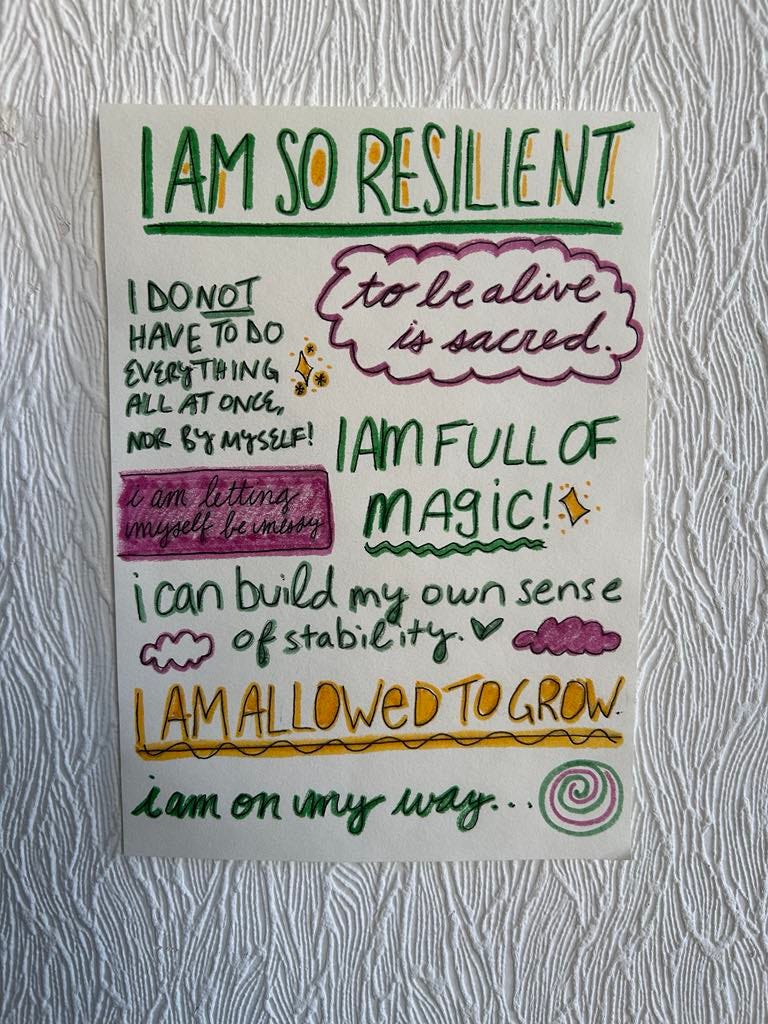 I AM SO RESILIENT.
I DO NOT
HAVE TO DO
EVERYTHING
ALL AT ONCE,
NOR BY MYSELF!
to be alive
is sacred.
i am letting
myself be messy
I AM FULL OF
MAGIC!
i can build my own sense
of stability.
I AM ALLOWED TO GROW.
i am on my way...